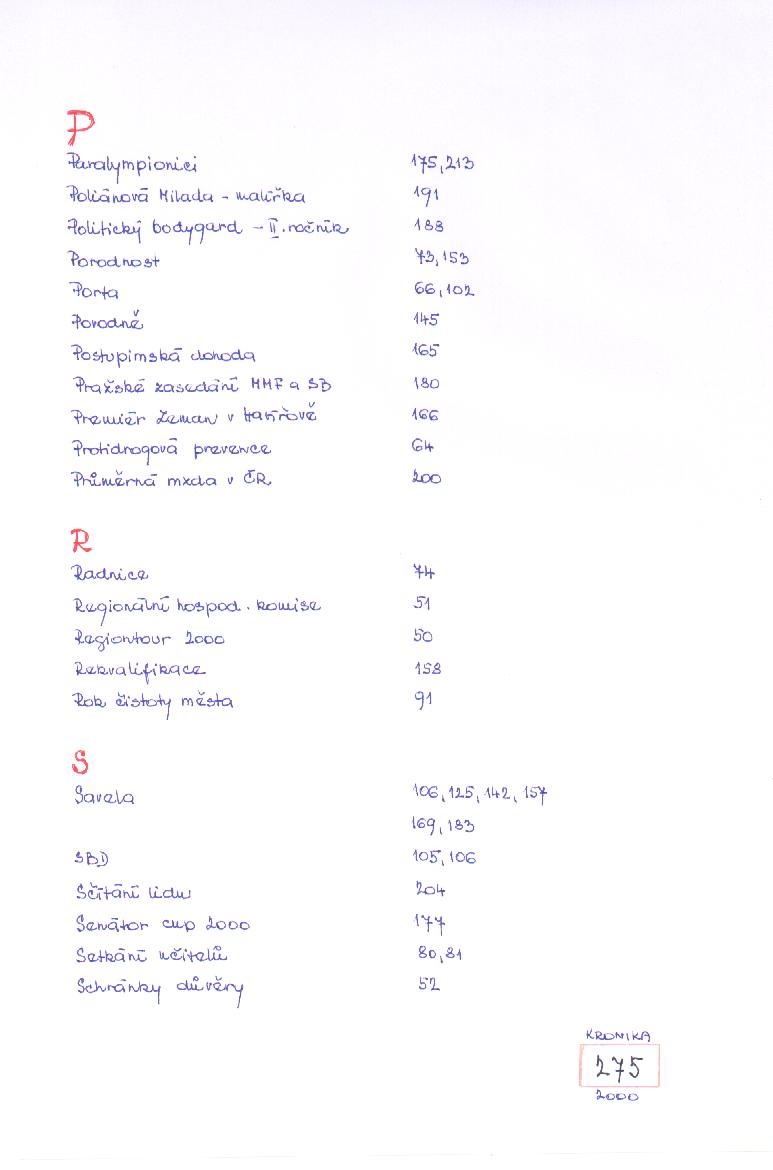 P
Paralympionici 175, 213
Poliánová Milada - malířka 191
Politický bodygard - II. ročník 188
Porodnost 73, 153
Porta 66, 102
Povodně 145
Postupimská dohoda 165
Pražské zasedání MMF a SB 180
Premiér Zeman v Havířově 166
Protidrogová prevence 64
Průměrná mzda v ČR 200
R
Radnice 74
Regionální hospod. komise 51
Regiontour 2000 50
Rekvalifikace 158
Rok čistoty města 91
S
Savela 106, 125, 142, 157
169, 183
SBD 105, 106
Sčítání lidu 204
Senátor cup 2000 177
Setkání učitelů 80, 81
Schránky důvěry 52
KRONIKA
275
2000